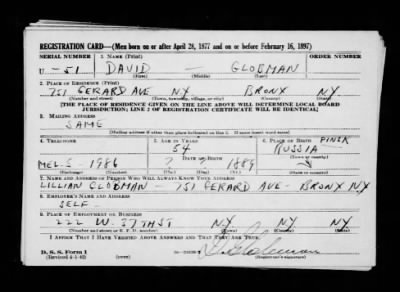 REGISTRATION CARD—(Men born on or after April 28, 1877 and on or before February 16, 1897)
SERIAL NUMBER 1. NAME (Print) ORDER NUMBER
U - 51 DAVID — GLOBMAN
(First) (Middle) (Last)
2. PLACE OF RESIDENCE (Print)
751 GERARD AVE NY BRONX NY
(Number and street) (Town, township, village, or city) (County) (State)
[THE PLACE OF RESIDENCE GIVEN ON THE LINE ABOVE WILL DETERMINE LOCAL BOARD
JURISDICTION; LINE 2 OF REGISTRATION CERTIFICATE WILL BE IDENTICAL]
3. MAILING ADDRESS
SAME
[Mailing address if other than place indicated on line 2. If same insert word same]
4. TELEPHONE 5. AGE IN YEARS 6. PLACE OF BIRTH
54 PINSK
MEL-5 - 1986 DATE OF BIRTH RUSSIA
? ? 1889
(Exchange) (Number) (Mo.) (Day) (Yr.) (State or country)
7. NAME AND ADDRESS OF PERSON WHO WILL ALWAYS KNOW YOUR ADDRESS
LILLIAN GLOBMAN - 751 GERARD AVE - BRONX NY
8. EMPLOYER'S NAME AND ADDRESS
SELF -
9. PLACE OF EMPLOYMENT OR BUSINESS
222 W. 37TH ST NY NY
(Number and street or R. F. D. number) (Town) (County) (State)
I AFFIRM THAT I HAVE VERIFIED ABOVE ANSWERS AND THAT THEY ARE TRUE.
D. S. S. Form 1
(Revised 4-1-42) (over)